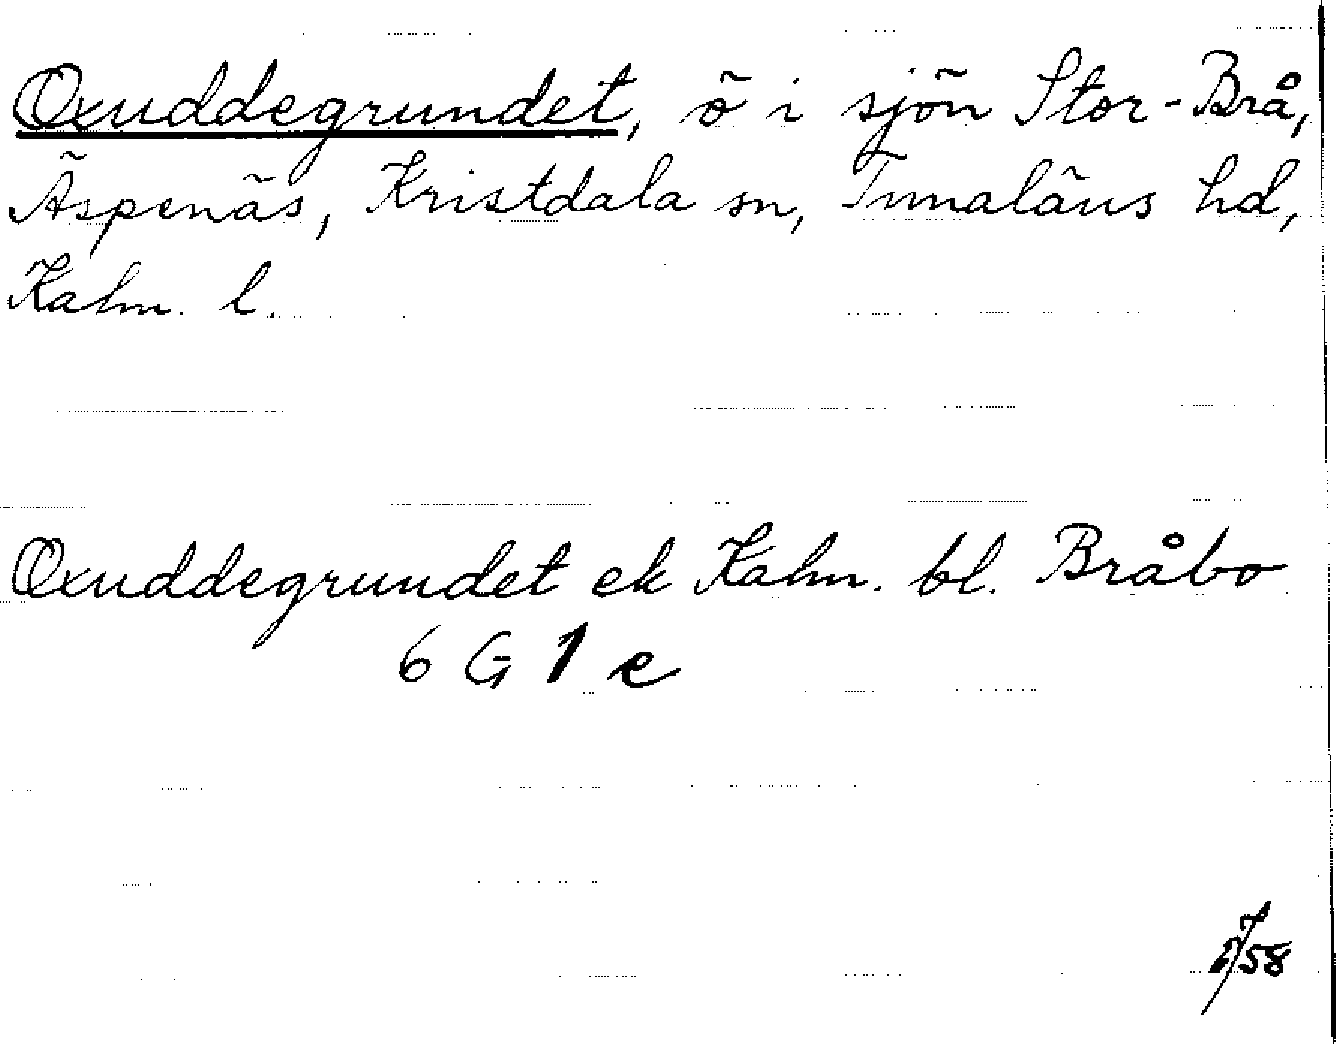 Oxuddegrundet, ö i sjön Stor-Brå,
Äspenäs, Kristdala sn, Tunaläns hd,
Kalm. l.
Oxuddegrundet ek Kalm. bl. Bråbo
6 G 1 e